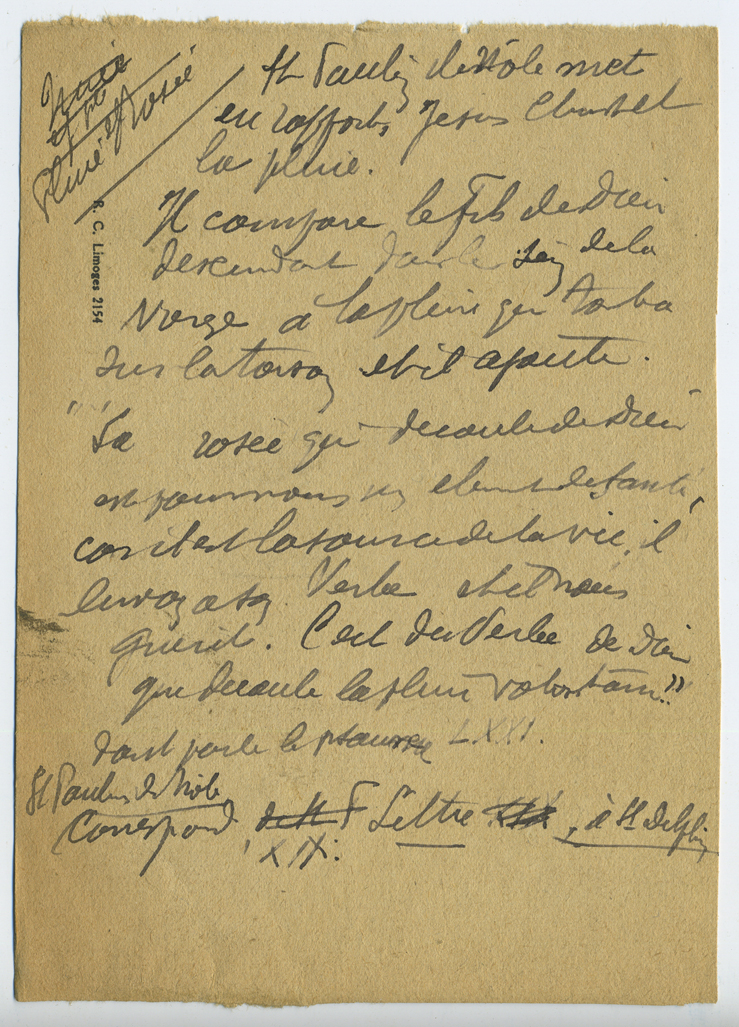 Pluie et Rosée
St Paulin de Nole met
en rapports Jesus Christ et
la pluie.
Il compare le fils de Dieu
descendant dans le sein de la
Vierge à la pluie qui tomba
sur la toison et il ajoute.
"La rosée qui decoule de Dieu
est pour nous un element de santé,
car il est la source de la vie, il
envoya son Verbe et il nous
guerit. C'est du Verbe de Dieu
que decoule la pluie volontaire"
dont parle le psaume LXXI.
St Paulin de Nole
Correspond, Lettre, à St Delphin
XIX.
R. C. Limoges 2154